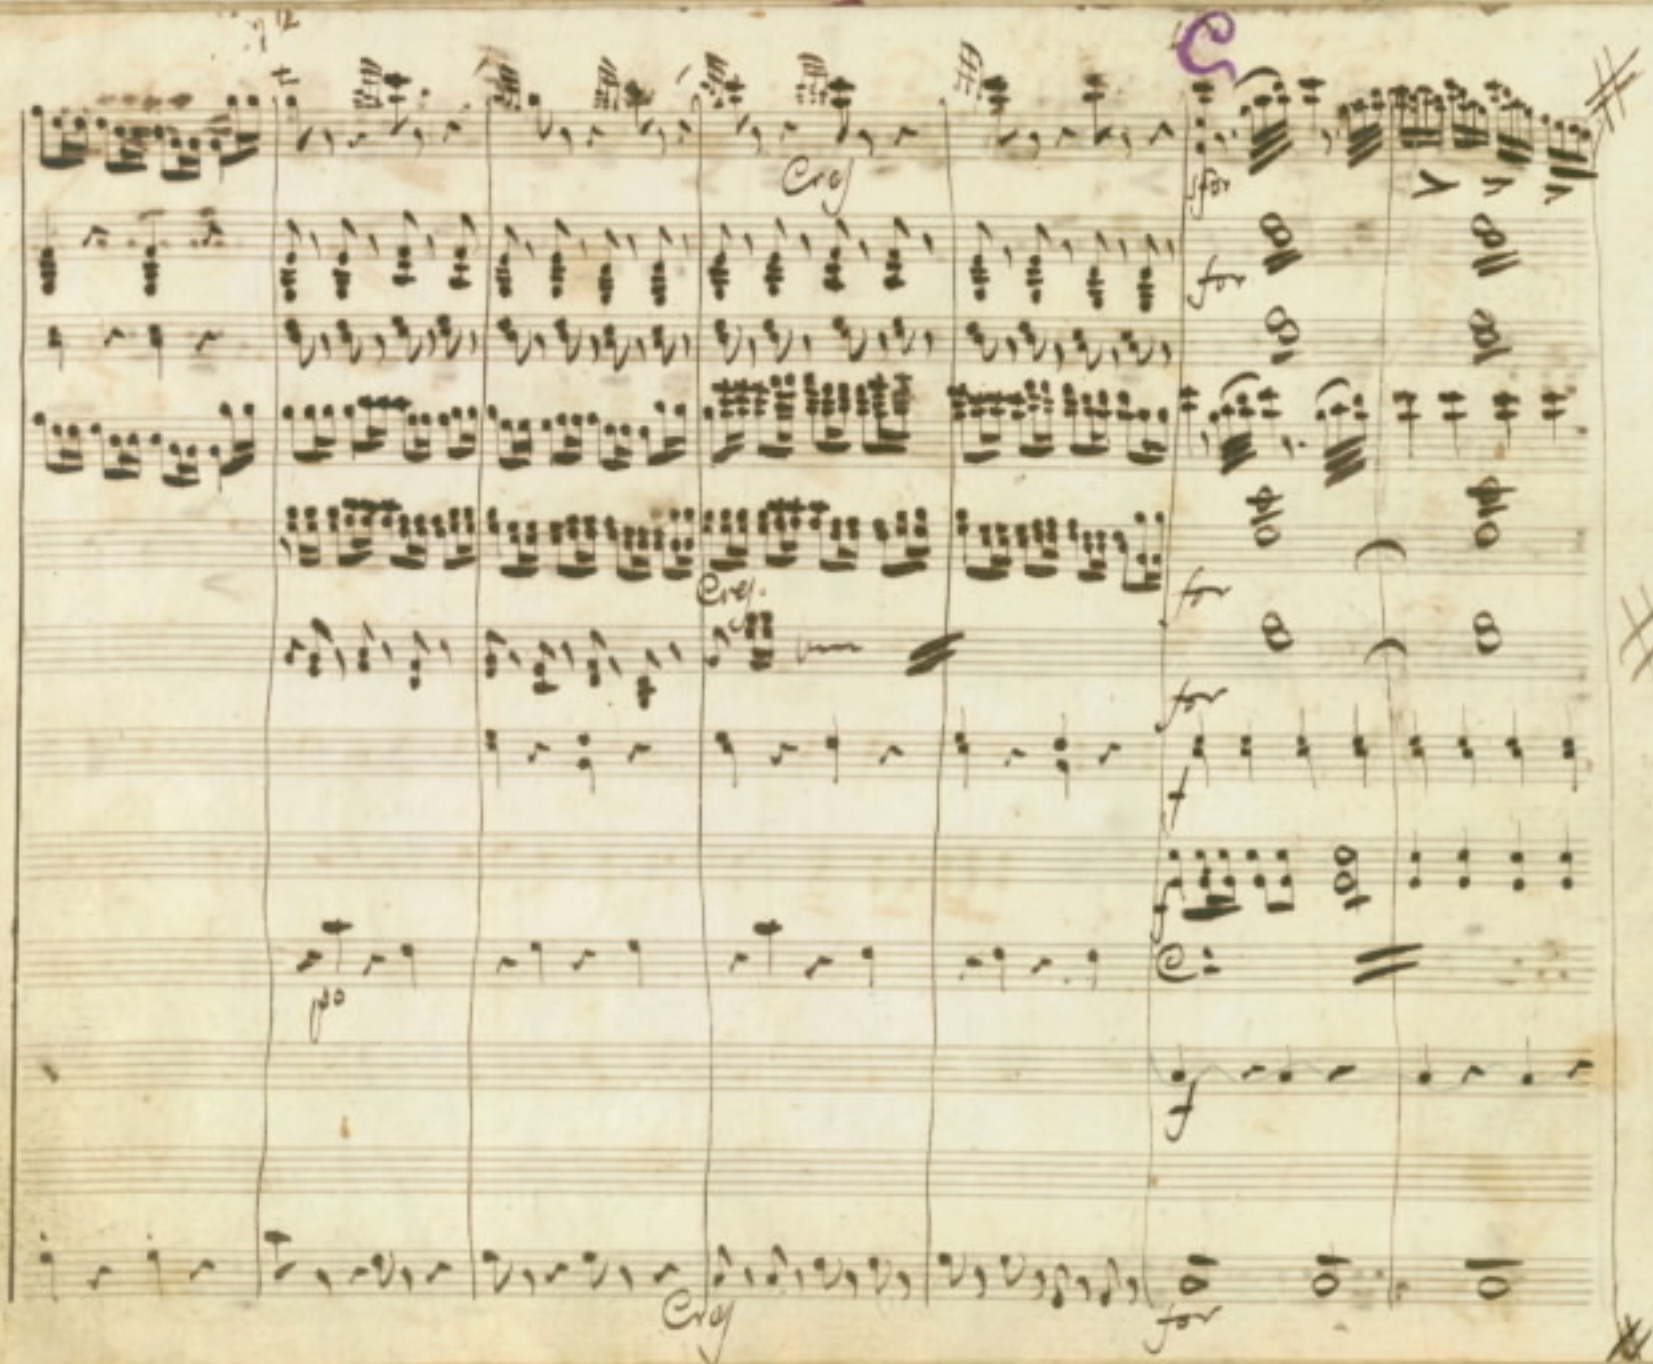 12
C
Cres
sfor
for
Cres.
for
for
f
f
po
f
Cres
for